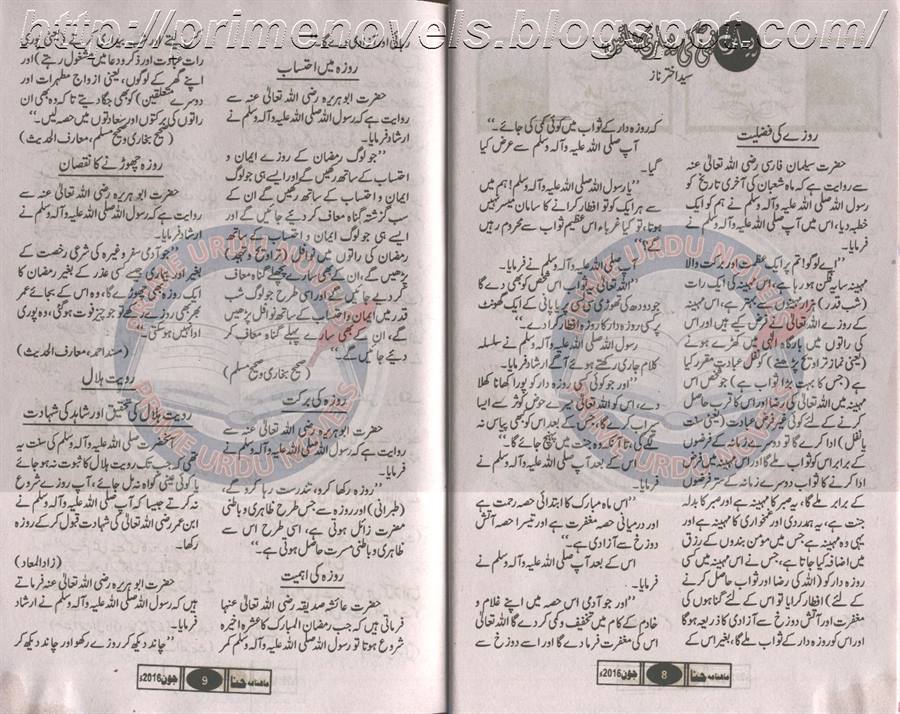 http://primenovels.blogspot.com/
سید اختر ناز
روزے کی فضیلت
حضرت سیلمان فارسی رضی اللہ تعالٰی عنہ
سے روایت ہے کہ ماہ شعبان کی آخری تاریخ کو
رسول اللہ صلی اللہ علیہ وآلہ وسلم نے ہم کو ایک
خطبہ دیا، اس میں آپ صلی اللہ علیہ وآلہ وسلم نے
فرمایا۔
”اے لوگو! تم پر ایک عظمت اور برکت والا
مہینہ سایہ فگن ہو رہا ہے، اس مہینہ کی ایک رات
(شب قدر) ہزار مہینوں سے بہتر ہے، اس مہینہ
کے روزے اللہ تعالٰی نے فرض کیے ہیں اور اس
کی راتوں میں بارگاہ الٰہی میں کھڑے ہونے
(یعنی نماز تراویح پڑھنے) کو نفل عبادت مقرر کیا
ہے (جس کا بہت بڑا ثواب ہے) جو شخص اس
مہینہ میں اللہ تعالٰی کی رضا اور اس کا قرب حاصل
کرنے کے لئے کوئی غیر فرض عبادت (یعنی سنت
یا نفل) ادا کرے گا تو دوسرے زمانہ کے فرضوں
کے برابر اس کو ثواب ملے گا اور اس مہینہ میں فرض
ادا کرنے کا ثواب دوسرے زمانہ کے ستر فرضوں
کے برابر ملے گا، یہ صبر کا مہینہ ہے اور صبر کا بدلہ
جنت ہے، یہ ہمدردی اور غمخواری کا مہینہ ہے اور
یہی وہ مہینہ ہے جس میں مومن بندوں کے رزق
میں اضافہ کیا جاتا ہے، جس نے اس مہینہ میں کسی
روزہ دار کو (اللہ کی رضا اور ثواب حاصل کرنے
کے لئے) افطار کرایا تو اس کے لئے گناہوں کی
مغفرت اور آتش دوزخ سے آزادی کا ذریعہ ہوگا
اور اس کو روزہ دار کے ثواب ملے گا، بغیر اس کے
کہ روزہ دار کے ثواب میں کوئی کمی کی جائے۔“
آپ صلی اللہ علیہ وآلہ وسلم سے عرض کیا
گیا۔
”یا رسول اللہ صلی اللہ علیہ وآلہ وسلم! ہم میں
سے ہر ایک کو تو افطار کرانے کا سامان میسر نہیں
ہوتا، تو کیا غرباء اس عظیم ثواب سے محروم رہیں
گے؟“
آپ صلی اللہ علیہ وآلہ وسلم نے فرمایا۔
”اللہ تعالٰی یہ ثواب اس شخص کو بھی دے گا
جو دودھ کی تھوڑی سی لسی پر یا پانی کے ایک گھونٹ
پر کسی روزہ دار کا روزہ افطار کرا دے۔“
رسول اللہ صلی اللہ علیہ وآلہ وسلم نے سلسلہ
کلام جاری رکھتے ہوئے آگے ارشاد فرمایا۔
”اور جو کوئی کسی روزہ دار کو پورا کھانا کھلا
دے، اس کو اللہ تعالٰی میرے حوض کوثر سے ایسا
سیراب کرے گا، جس کے بعد اس کو کبھی پیاس نہ
لگے گی، تاآنکہ وہ جنت میں پہنچ جائے گا۔“
اس کے بعد آپ صلی اللہ علیہ وآلہ وسلم نے
فرمایا۔
”اس ماہ مبارک کا ابتدائی حصہ رحمت ہے
اور درمیانی حصہ مغفرت ہے اور تیسرا حصہ آتش
دوزخ سے آزادی ہے۔“
اس کے بعد آپ صلی اللہ علیہ وآلہ وسلم نے
فرمایا۔
”اور جو آدمی اس حصہ میں اپنے غلام و
خادم کے کام میں تخفیف و کمی کر دے گا اللہ تعالٰی
اس کی مغفرت فرما دے گا اور اسے دوزخ سے
ماہنامہ حنا 8 جون 2016ء
رہائی اور آزادی دے گا۔“
روزہ میں احتساب
حضرت ابو ہریرہ رضی اللہ تعالٰی عنہ سے
روایت ہے کہ رسول اللہ صلی اللہ علیہ وآلہ وسلم نے
ارشاد فرمایا۔
”جو لوگ رمضان کے روزے ایمان و
احتساب کے ساتھ رکھیں گے اور ایسے ہی جو لوگ
ایمان و احتساب کے ساتھ رکھیں گے ان کے
سب گزشتہ گناہ معاف کر دیئے جائیں گے اور
ایسے ہی جو لوگ ایمان و احتساب کے ساتھ
رمضان کی راتوں میں نوافل (تراویح و تہجد)
پڑھیں گے، ان کے بھی سارے پچھلے گناہ معاف
کر دیے جائیں گے اور اسی طرح جو لوگ شب
قدر میں ایمان و احتساب کے ساتھ نوافل پڑھیں
گے، ان کے بھی سارے پہلے گناہ معاف کر
دیئے جائیں گے۔“
(صحیح بخاری و صحیح مسلم)
روزہ کی برکت
حضرت ابو ہریرہ رضی اللہ تعالٰی عنہ سے
روایت ہے کہ رسول اللہ صلی اللہ علیہ وآلہ وسلم نے
فرمایا۔
”روزہ رکھا کرو، تندرست رہا کرو گے،
(طبرانی) اور روزہ سے جس طرح ظاہری و باطنی
مضرت زائل ہوتی ہے، اسی طرح اس سے
ظاہری و باطنی مسرت حاصل ہوتی ہے۔“
روزہ کی اہمیت
حضرت عائشہ صدیقہ رضی اللہ تعالٰی عنہا
فرماتی ہیں کہ جب رمضان المبارک کا عشرہ اخیرہ
شروع ہوتا تو رسول اللہ صلی اللہ علیہ وآلہ وسلم کمر
کس لیتے اور شب بیداری کرتے (یعنی پوری
رات عبادت اور ذکر و دعا میں مشغول رہتے) اور
اپنے گھر کے لوگوں، یعنی ازواج مطہرات اور
دوسرے متعلقین) کو بھی جگا دیتے تا کہ وہ بھی ان
راتوں کی برکتوں اور سعادتوں میں حصہ لیں۔“
(صحیح بخاری و صحیح مسلم، معارف الحدیث)
روزہ چھوڑنے کا نقصان
حضرت ابو ہریرہ رضی اللہ تعالٰی عنہ سے
روایت ہے کہ رسول اللہ صلی اللہ علیہ وآلہ وسلم نے
ارشاد فرمایا۔
”جو آدمی سفر وغیرہ کی شرعی رخصت کے
بغیر اور بیماری جیسے کسی عذر کے بغیر رمضان کا
ایک روزہ بھی چھوڑے گا، وہ اس کے بجائے عمر
بھر بھی روزے رکھے تو جو چیز فوت ہوگئی، وہ پوری
ادا نہیں ہو سکتی۔“
(مسند احمد، معارف الحدیث)
رویت ہلال
رویت ہلال کی تحقیق اور شاہد کی شہادت
آنحضرت صلی اللہ علیہ وآلہ وسلم کی سنت یہ
تھی کہ جب تک رویت ہلال کا ثبوت نہ ہو جائے
یا کوئی عینی گواہ نہ مل جائے، آپ روزے شروع
نہ کرتے جیسا کہ آپ صلی اللہ علیہ وآلہ وسلم نے
ابن عمر رضی اللہ تعالٰی کی شہادت قبول کر کے روزہ
رکھا۔
(زاد المعاد)
حضرت ابو ہریرہ رضی اللہ تعالٰی عنہ فرماتے
ہیں کہ رسول اللہ صلی اللہ علیہ وآلہ وسلم نے ارشاد
فرمایا۔
”چاند دیکھ کر روزے رکھو اور چاند دیکھ کر
ماہنامہ حنا 9 جون 2016ء
PRIME URDU NOVELS
PRIME URDU NOVELS